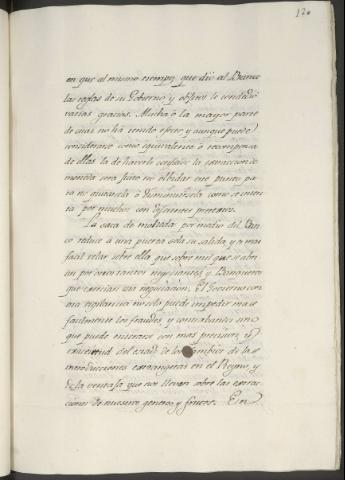 12.
en que al mismo tiempo, que dió al Banco
las reglas de su Gobierno, y
varias gracias. Mucha ó la mayor parte
de ellas no há tenido efecto y aunque puede
considerarse como equivalente ó recompensa
de ellas la de haverle confiado la extraccion de
moneda será justo no olbidar este punto pa-
ra no quitarsela ó disminuirsela como se inten-
ta por muchos con diferentes pretextos.
La saca de moneda por medio del Ban-
co reduce á una puerta sola su salida, y es mas
facil velar sobre ella que sobre mil que se abri-
an por otros tantos negociantes y Banqueros
que exercian esa negociacion. El Govierno con
una vigilancia sencilla puede impedir mas
facilmente los fraudes, y contrabandos sin
que puede enterarse con mas precision, y
exactitud del estado de los Cambios de las
introducciones extrangeras en el Reyno, y
de la ventaja que nos llevan sobre las extrac-
ciones de nuestros generos y frutos. En